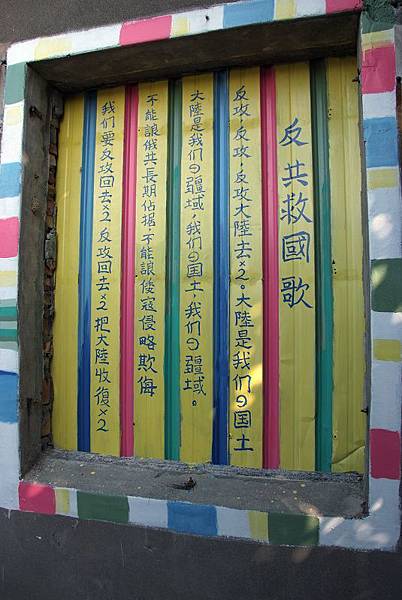 反共救國歌
反攻，反攻，反攻大陸去×2。大陸是我们の国土
大陸是我们の疆域，我们の国土，我们の疆域。
不能讓俄共長期佔据 不能讓倭寇侵略欺侮
我们要反攻回去×2 反攻回去×2 把大陸收復×2